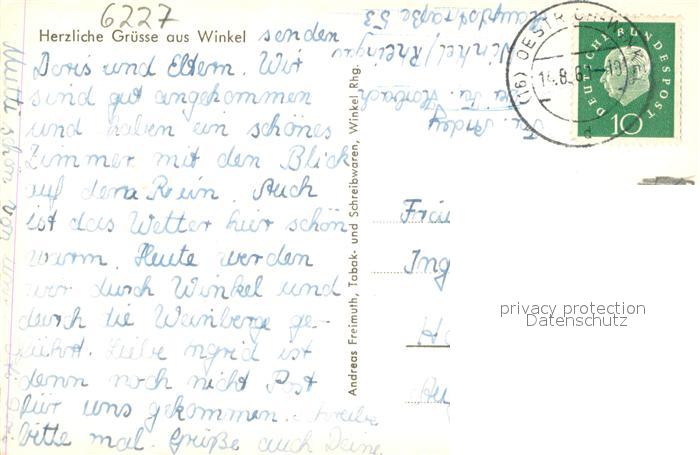 6227
Herzliche Grüsse aus Winkel senden
Doris und Eltern. Wir
sind gut angekommen
und haben ein schönes
Zimmer mit den Blick
auf dem Rein. Auch
ist das Wetter hier schön
warm. Heute werden
wir durch Winkel und
durch die Weinberge ge-
führt. Liebe Ingrid ist
denn noch nicht Post
für uns gekommen. schreibe
bitte mal. Grüße auch Deine
Mutti schön von uns
Andreas Freimuth, Tabak- und Schreibwaren, Winkel, Rhg.
Hauptstraße 53
Winkel/Rheingau
bei Fr.
(16) OESTRICH-W
14.8.6
DEUTSCHE BUNDESPOST
10
Fräu
Ing
privacy protection
Datenschutz